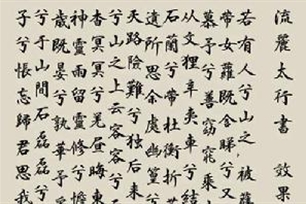 流麗太行書 效果
若有人兮山之被又
帶女蘿既含睇兮
慕予兮善窈窕乘
从文貍辛夷車兮結
石蘭兮帶杜衡折
遺所思余處幽篁
天路險難兮獨后來
兮山之上云容容兮
杳冥冥兮羌晝晦東
神靈雨留靈修兮
歲既晏兮孰華予
兮于山間石磊磊兮
子兮悵忘歸君思我